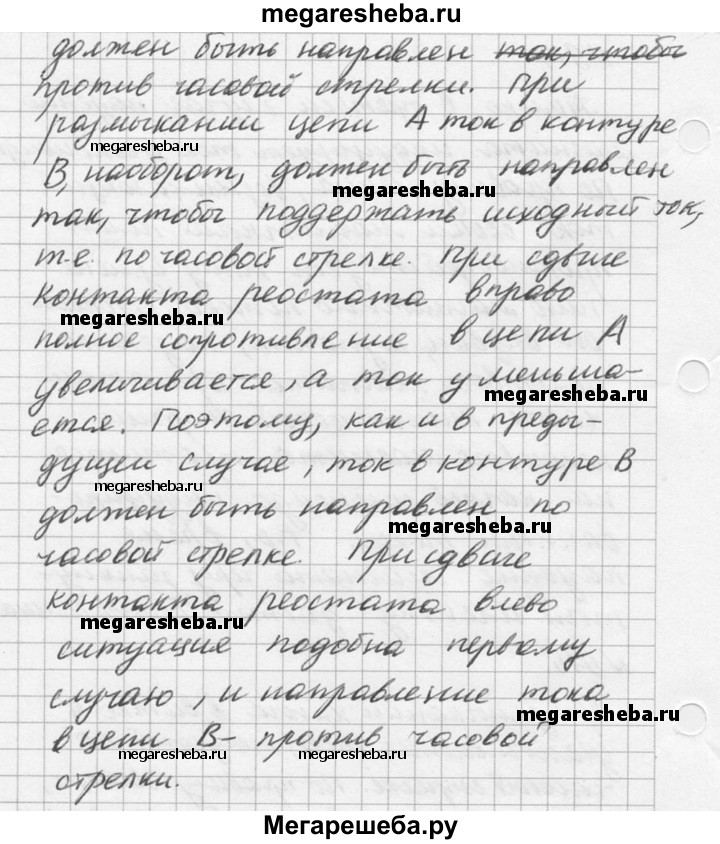 megaresheba.ru
должен быть направлен ток, чтобы
против часовой стрелки. При
размыкании цепи А ток в контуре
megaresheba.ru
В, наоборот, должен быть направлен
megaresheba.ru
так, чтобы поддержать исходный ток,
т.е. по часовой стрелке. При сдвиге
контакта реостата вправо
megaresheba.ru
полное сопротивление в цепи А
увеличивается, а ток уменьша-
megaresheba.ru
ется. Поэтому, как и в преды-
дущем случае, ток в контуре В
megaresheba.ru
должен быть направлен по
megaresheba.ru
часовой стрелке. При сдвиге
контакта реостата влево
megaresheba.ru
ситуация подобна первому
случаю, и направление тока
megaresheba.ru
в цепи В - против часовой
megaresheba.ru megaresheba.ru
стрелки.
Мегарешеба.ру